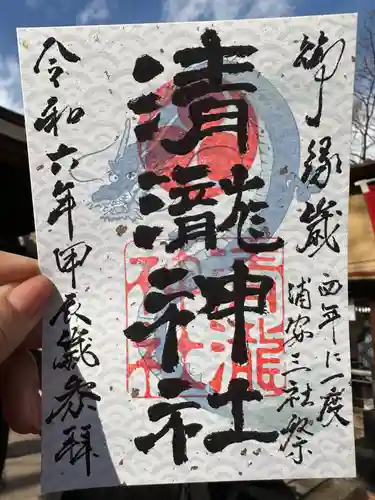 御縁歳
四年に一度
浦安三社祭
清瀧神社
令和六年甲辰歳参拝
清瀧神社